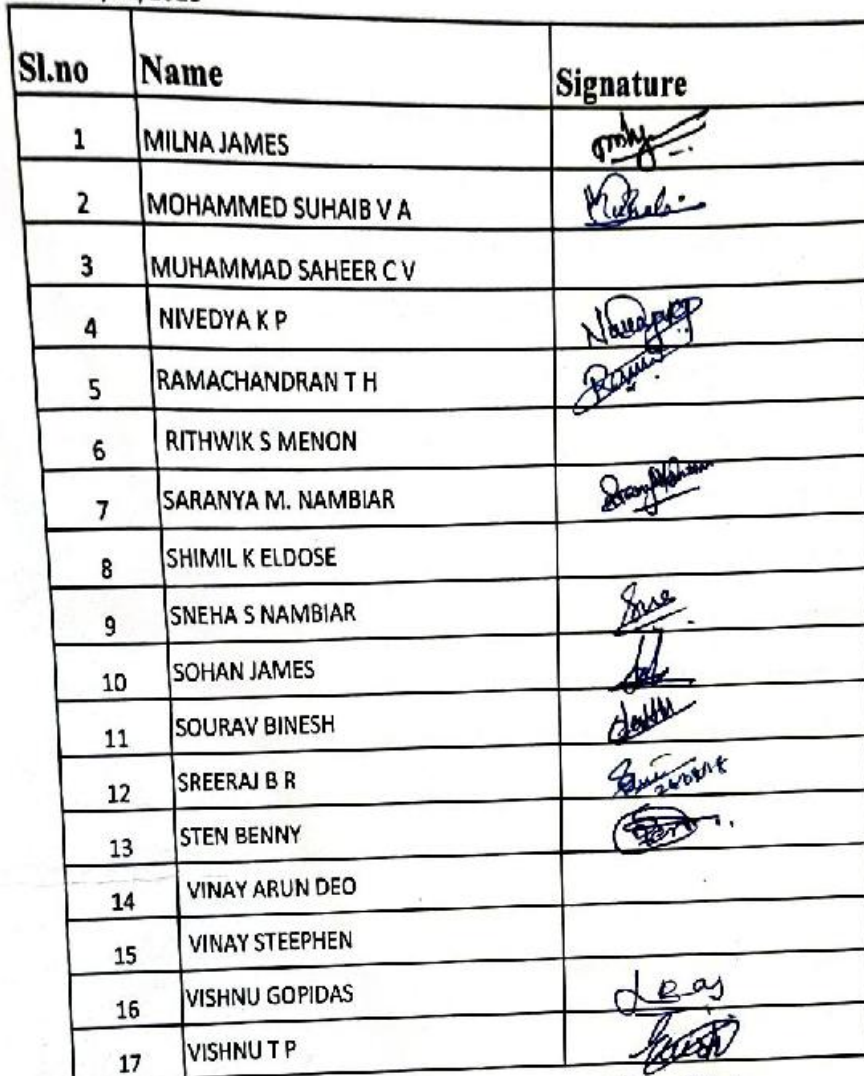 Sl.no Name Signature
1 MILNA JAMES
2 MOHAMMED SUHAIB V A
3 MUHAMMAD SAHEER C V
4 NIVEDYA K P
5 RAMACHANDRAN T H
6 RITHWIK S MENON
7 SARANYA M. NAMBIAR
8 SHIMIL K ELDOSE
9 SNEHA S NAMBIAR
10 SOHAN JAMES
11 SOURAV BINESH
12 SREERAJ B R
13 STEN BENNY
14 VINAY ARUN DEO
15 VINAY STEEPHEN
16 VISHNU GOPIDAS
17 VISHNU T P